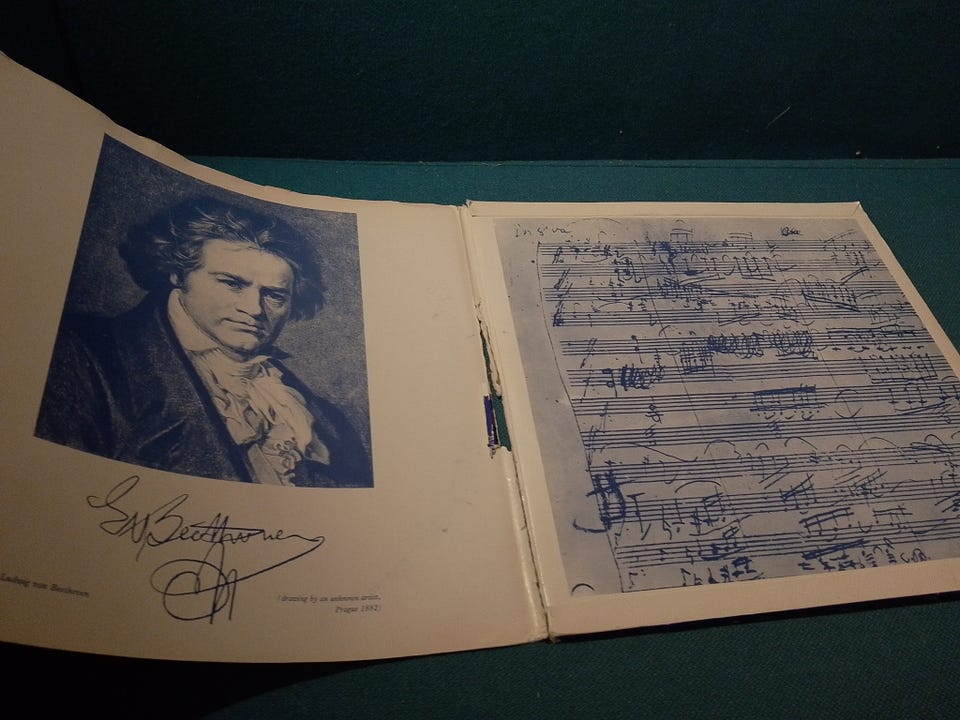 LvBeethoven
Ludwig van Beethoven
(drawing by an unknown artist,
Prague 1882)
in 8va